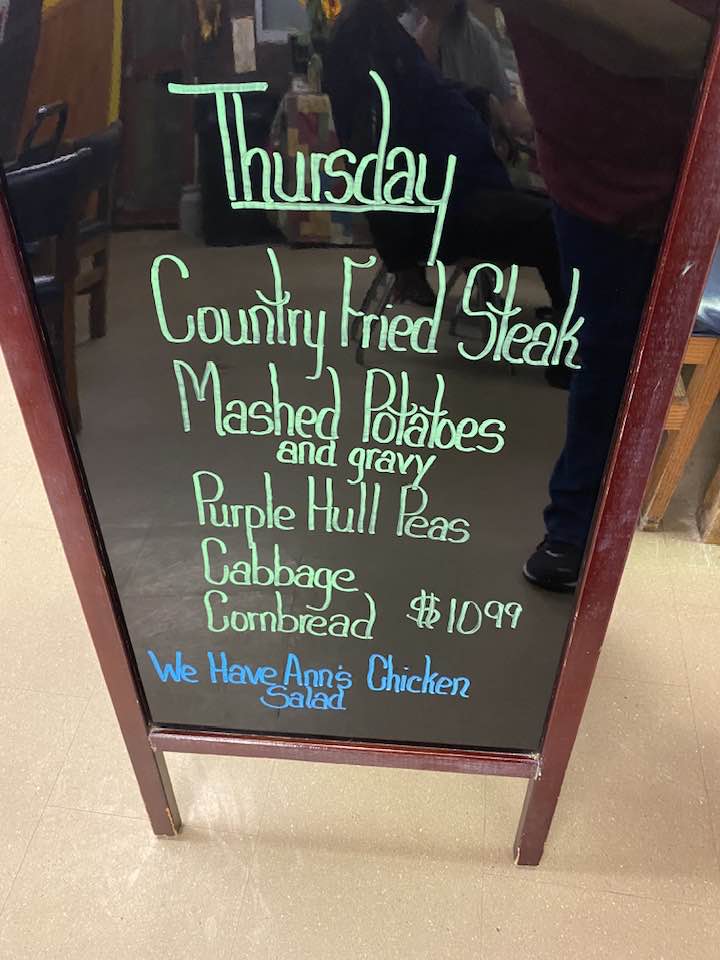 Thursday
Country Fried Steak
Mashed Potatoes
and gravy
Purple Hull Peas
Cabbage
Cornbread $10.99
We Have Ann's Chicken
Salad